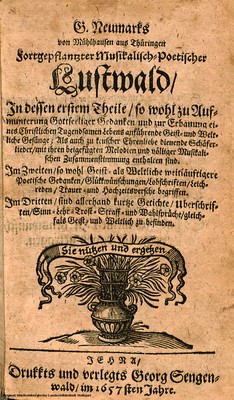 G. Neumarks
von Mühlhausen aus Thüringen
Fortgepflantzter Musikalisch-Poetischer
Lustwald/
In dessen erstem Theile/ so wohl zu Auf-
munterung Gottseeliger Gedanken und zur Erbauung ei-
nes Christlichen Tugendsamen Lebens anführende Geist- und Welt-
liche Gesänge; Als auch zu keuscher Ehrenliebe dienende Schäfer-
lieder/ mit ihren beigefügten Melodien und völliger Musikali-
schen Zusammenstimmung enthalten sind.
Im Zweiten/ so wohl Geist- als Weltliche weitläufftigere
Poetische Gedanken/ Glükwünschungen/ Lobschrifften/ Leich-
reden/ Trauer- und Hochzeitverse begriffen.
Im Dritten/ sind allerhand kurtze Getichte/ Überschrif-
ten/ Sinn- Lehr- Trost- Straff- und Wahlsprüche/ gleich-
fals Geist- und Weltlich zu befinden.
Sie nützen und ergetzen
JEHNA/
Drukkts und verlegts Georg Sengen-
wald/ im 1657sten Jahre.